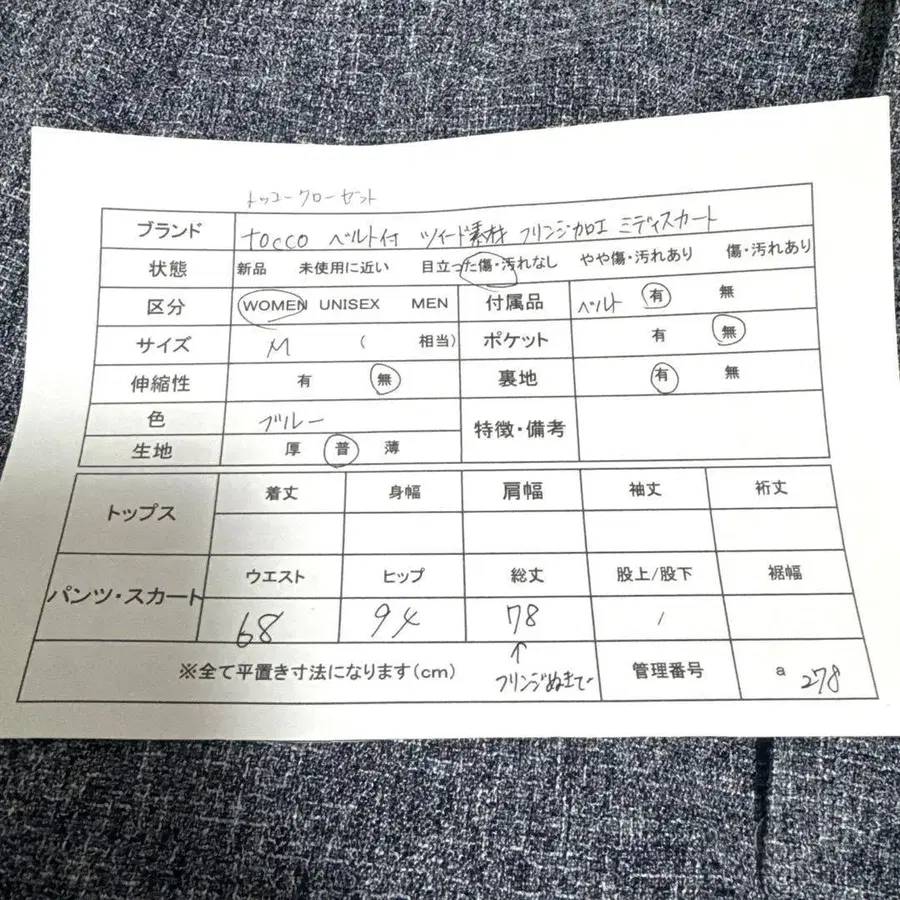 トッコークローゼット
ブランド tocco ベルト付 ツイード素材 フリンジ加工 ミディスカート
状態 新品 未使用に近い 目立った傷・汚れなし やや傷・汚れあり 傷・汚れあり
区分 WOMEN UNISEX MEN 付属品 ベルト 有 無
サイズ M ( 相当) ポケット 有 無
伸縮性 有 無 裏地 有 無
色 ブルー 特徴・備考
生地 厚 普 薄
トップス 着丈 身幅 肩幅 袖丈 裄丈
パンツ・スカート ウエスト ヒップ 総丈 股上/股下 裾幅
68 94 78 /
※全て平置き寸法になります(cm) ↑ フリンジぬきで 管理番号 a 278